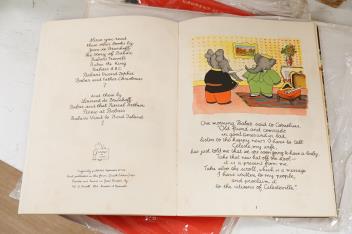 Have you read
these other Books by
Jean de Brunhoff
The Story of Babar
Babar's Travels
Babar the King
Babar's A B C
Babar's Friend Zephir
Babar and Father Christmas
?
And these by
Laurent de Brunhoff
Babar and that Rascal Arthur
Picnic at Babar's
Babar's Visit to Bird Island
?
One morning Babar said to Cornelius,
"Old friend and comrade
in good times and in bad,
listen to the happy news I have to tell.
Celeste my wife,
has just told me that we are soon going to have a baby.
Take that new hat off the stool —
it is a present from me.
Take also the scroll, which is a message
I have written to my people,
and proclaim it
to the citizens of Celesteville."